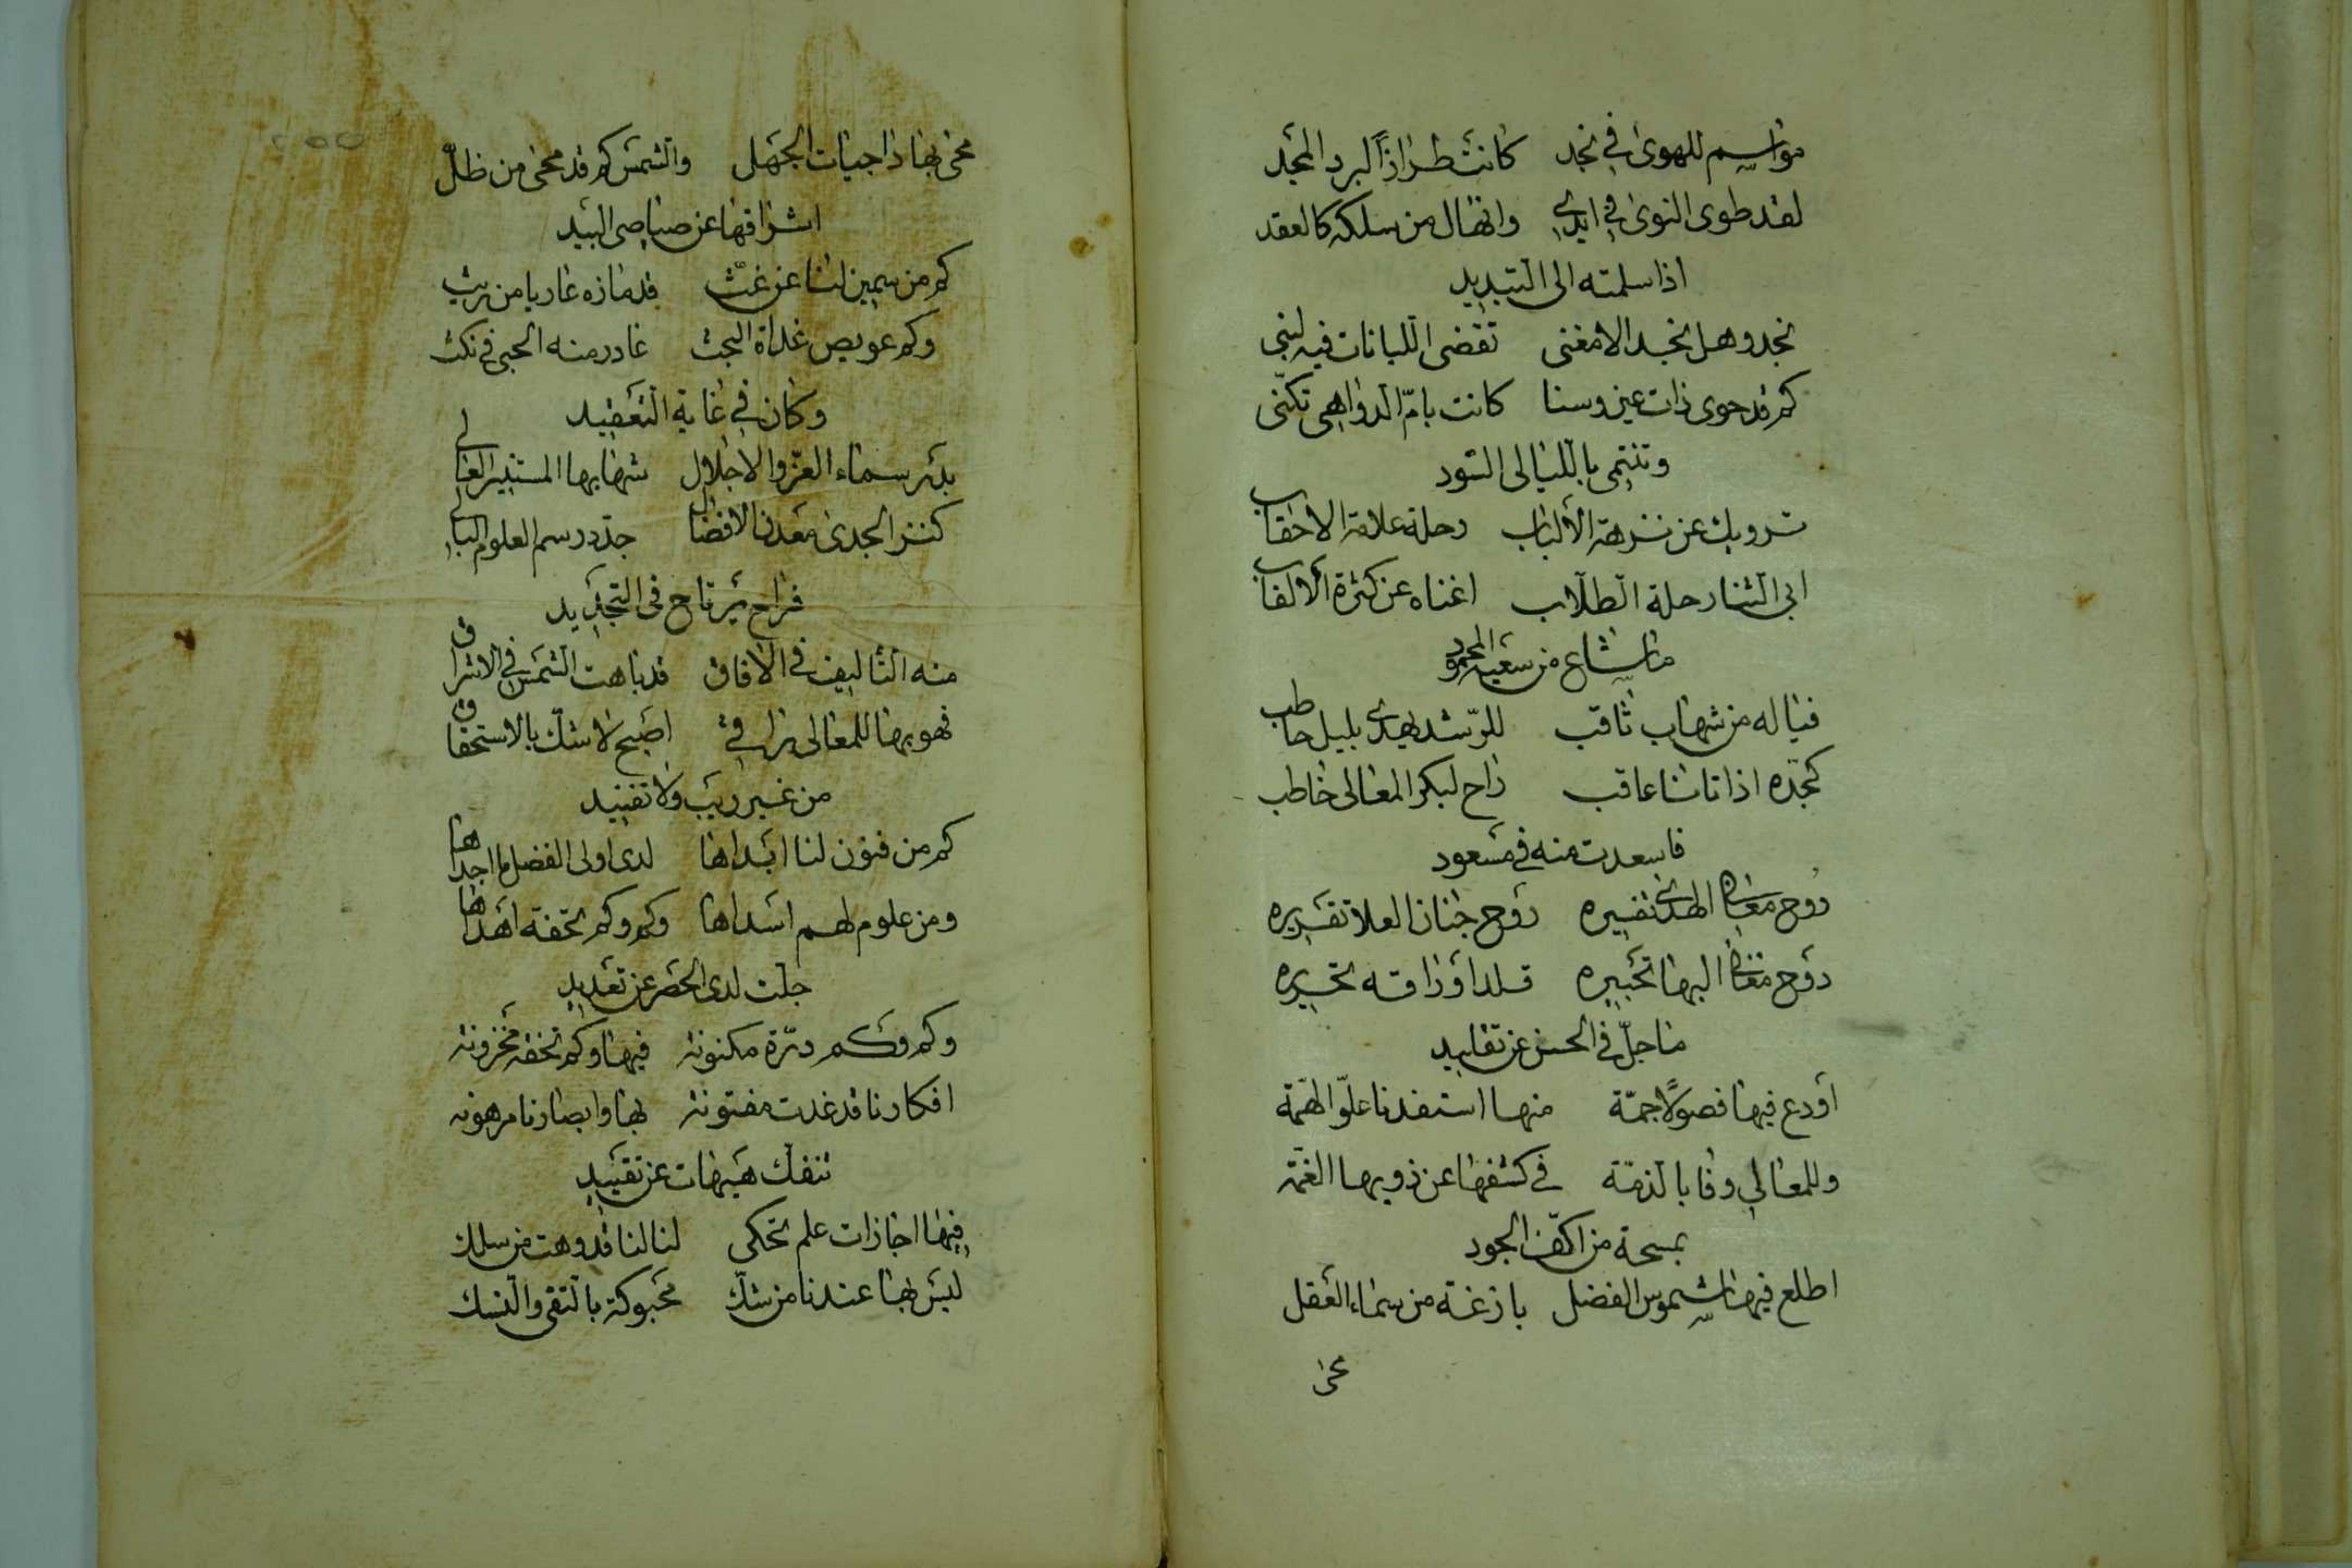 مواسم للهوى في نجد كانت طرازاً لبرد المجد
لقد طوى النوى في ايدي وانثال من سلكه كالعقد
اذا سلمته الى التبديد
نجد وهل نجد الا مغنى تقضى اللبانات فيه لبنى
كم قد حوى ذات عين وسنا كانت بامّ الدواهي تكنّى
وتنتمى بالليالى السّود
ترويك عن نزهة الألباب رحلة علامة الاحقاب
ابى الثنا رحلة الطلّاب اغناه عن كثرة الالقاب
ما شاع من سعيه المحمود
فياله من شهاب ثاقب للرّشد يهدي بليل حاطب
كجدّه اذا تانا عاقب راح لبكر المعالى خاطب
فاسعدت منه في مسعود
روح معاني الهدى تفسيره روح جنان العلا تقريره
دوح مغاني البها تحبيره قلد اوراقه تحريره
ما جلّ في الحسن عن تقليد
أودع فيها فصولاً جمّة منها استفدنا علوّ الهمّة
وللمعالي وفا بالذمّة في كشفها عن ذويها الغمّة
بمسحة من اكفّ الجود
اطلع فيها شموس الفضل بازغة من سماء العقل
محى
محى بها داجيات الجهل والشمس كم قد محى من ظلّ
اشراقها عن صياصى البيد
كم من سمين لنا عن غثّ قد مازه عاريا من ريث
وكم عويص غداة البحث غادر منه الحبى في نكث
وكان في غاية التعقيد
بدر سماء العزّ والاجلال شهابها المستنير العالي
كنز الجدى معدن الافضال جدّد رسم العلوم البالي
فراح يرتاح في التجديد
منه التأليف في الافاق قد باهت الشمس في الاشراق
فهو بها للمعالى راقي اصبح لا شك بالاستحقاق
من غير ريب ولا تفنيد
كم من فنون لنا ابداها لدى اولى الفضل ما اجداها
ومن علوم لهم اسداها وكم وكم تحفة اهداها
جلّت لدى الحصر عن تعديد
وكم وكم درّة مكنونة فيها وكم تحفة مخزونة
افكارنا قد غدت مفتونة بها وابصارنا مرهونة
تنفك هيهات عن تقييد
فيها اجازات علم تحكى لنا لنا قد وهت من سلك
ليس بها عندنا من شكّ محبوكة بالتقى والنسك